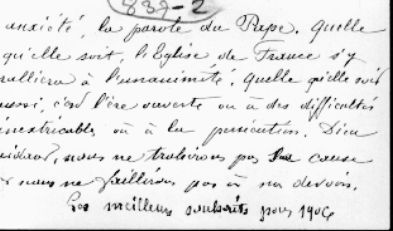 839-2
anxiété, la parole du Pape. Quelle
qu'elle soit, l'Eglise de France s'y
ralliera à l'unanimité. Quelle qu'elle soit
aussi, c'est l'ère ouverte ou à des difficultés
inextricables ou à la persécution. Dieu
aidant, nous ne trahirons pas sa cause
& nous ne faillirons pas à nos devoirs.
Les meilleurs souhaits pour 1906